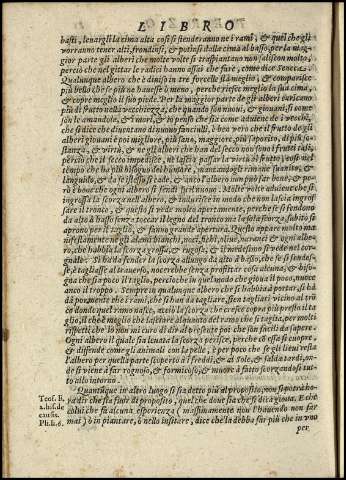 LIBRO
basti, leuargli la cima alta così si stenderanno ne i rami; & quel che gli
vorranno tener alti, frondusi, & potinsi dalla cima al basso, per la mag-
gior parte gli alberi che molte volte si traspiantano non saliscon molto,
perciò che nel gittar le radici hanno assai che fare, come dice Seneca.
Qualunque albero che è diuiso in tre forcelle fia meglio, & comparisce
più bello che se più ne hauesse ò meno, perche riesce meglio la sua cima,
& copre meglio il suo piede. Per la maggior parte de gli alberi caricano
più di frutto nella vecchiezza, che quando son nuoui, & giouani, sì come
son le amandole, & i mori, & io penso che sia come auuiene de i vecchi,
che si dice che diuentano di nuouo fanciulli. è ben vero che il frutto de gli
alberi giouani è poi migliore, più sano, maggiore, più saporito, di più so-
stanza, & virtù, & ne gli alberi che han del secco non sono i frutti tali,
perciò che il secco impedisce, ne lascia passar la virtù al frutto, & così nel
tempo che ha più bisogno d'humore, mancandogli rimane suanito, &
languido, & da se stesso si cade, & anco l'albero non può far bene, & pe-
rò è buon che ogni albero si fendi per l'nuomo. Molte volte aduiene che si
ingrossa la scorza nell'albero, & indurisce in modo che non lascia ingros-
sare il tronco, & questo si vede molto apertamente, perche se si fendono
da alto à basso senza toccar il legno del tronco ma la sola scorza, subito si
aprono per il taglio, & fanno grande apertura. Questo appare molto ma-
nifestamente ne gli alami bianchi, noci, fichi, oliue, naranci & ogni albe-
ro, che habbia la scorza grossa, & rugosa, & il medesimo si vede nel cor-
gnale. Si ha da fender la scorza allungo da alto à basso, che se si fendes-
se, ò tagliasse al trauerso, nocerebbe senza profittar cosa alcuna, & biso-
gna che sia poco il taglio, percioche in quel modo che gioua il poco, nuoce
anco il troppo. Sempre in qualunque albero che si habbia à potar, si ha
da por mente che i rami, che si han da tagliare, sien tagliati vicino al trõ
co donde quel ramo nasce, acciò la scorza che cresce copra più presto il ta-
glio, il che è meglio che lasciare alcuna parte del ramo che si taglia, per molti
rispetti, che io non mi curo di dir al presente poi che son facili da sapere.
Ogni albero il quale sia leuata la scorza perisce, perche con essa si cuopre,
& si difende come gli animali con la pelle, & per poco che se gli lieui resta
l'albero per quella parte scoperto à i freddi, & al sole, & salda tardi, on-
de si viene à far rognoso, & formicoso, & muore à fatto scorzandosi tut-
to allo intorno.
Quantunque in altro luogo si sia detto più al proposito, non si potrà ho-
ra dir che sia fuor di proposito, quel che doue stia che si dica gioua. E che
colui che fia alcuna esperienza (massimamente non l'hauendo non far
mai) ò in piantare, ò nello insitare, dice che la debba far più che in vno
per
Teof. li.
2. hist. de
causis.
Pli. li. 6.